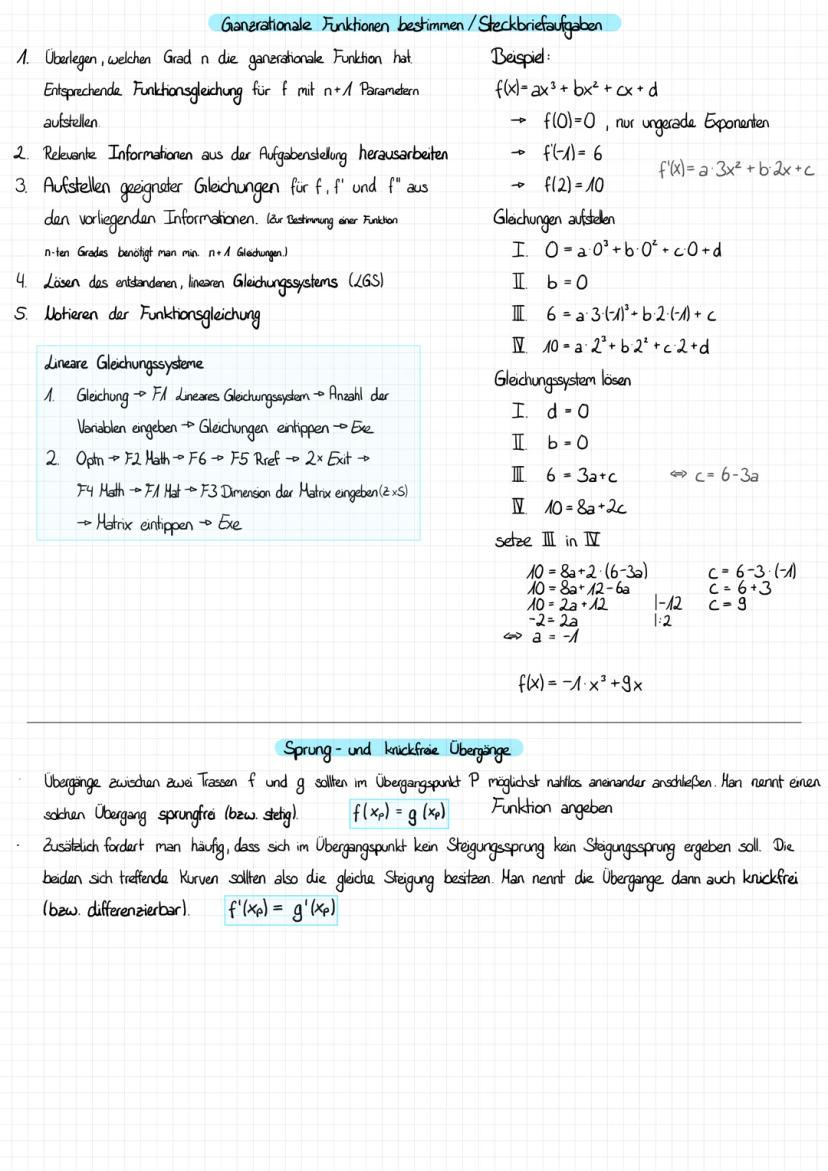 Ganzrationale Funktionen bestimmen / Steckbriefaufgaben
1. Überlegen, welchen Grad n die ganzrationale Funktion hat.
Entsprechende Funktionsgleichung für f mit n+1 Parametern
aufstellen.
2. Relevante Informationen aus der Aufgabenstellung herausarbeiten
3. Aufstellen geeigneter Gleichungen für f, f' und f" aus
den vorliegenden Informationen. (Zur Bestimmung einer Funktion
n-ten Grades benötigt man min. n+1 Gleichungen.)
4. Lösen des entstandenen, linearen Gleichungssystems (LGS)
5. Notieren der Funktionsgleichung
Lineare Gleichungssysteme
1. Gleichung → F1 Lineares Gleichungssystem → Anzahl der
Variablen eingeben → Gleichungen eintippen → Exe
2. Optn → F2 Math → F6 → F5 Rref → 2x Exit →
F4 Math → F1 Mat → F3 Dimension der Matrix eingeben (2x5)
→ Matrix eintippen → Exe
Beispiel:
f(x) = ax³ + bx² + cx + d
→ f(0)=0 , nur ungerade Exponenten
→ f'(-1) = 6
f'(x) = a·3x² + b·2x + c
→ f(2) = 10
Gleichungen aufstellen
I. 0 = a·0³ + b·0² + c·0 + d
II. b = 0
III. 6 = a·3·(-1)³ + b·2·(-1) + c
IV. 10 = a·2³ + b·2² + c·2 + d
Gleichungssystem lösen
I. d = 0
II. b = 0
III. 6 = 3a + c ⇔ c = 6-3a
IV. 10 = 8a + 2c
setze III in IV
10 = 8a + 2·(6-3a) c = 6-3·(-1)
10 = 8a + 12 - 6a c = 6+3
10 = 2a + 12 |-12 c = 9
-2 = 2a |:2
⇔ a = -1
f(x) = -1·x³ + 9x
Sprung- und knickfreie Übergänge
· Übergänge zwischen zwei Trassen f und g sollten im Übergangspunkt P möglichst nahtlos aneinander anschließen. Man nennt einen
solchen Übergang sprungfrei (bzw. stetig). f(xₚ) = g(xₚ) Funktion angeben
· Zusätzlich fordert man häufig, dass sich im Übergangspunkt kein Steigungssprung kein Steigungssprung ergeben soll. Die
beiden sich treffende Kurven sollten also die gleiche Steigung besitzen. Man nennt die Übergange dann auch knickfrei
(bzw. differenzierbar). f'(xₚ) = g'(xₚ)